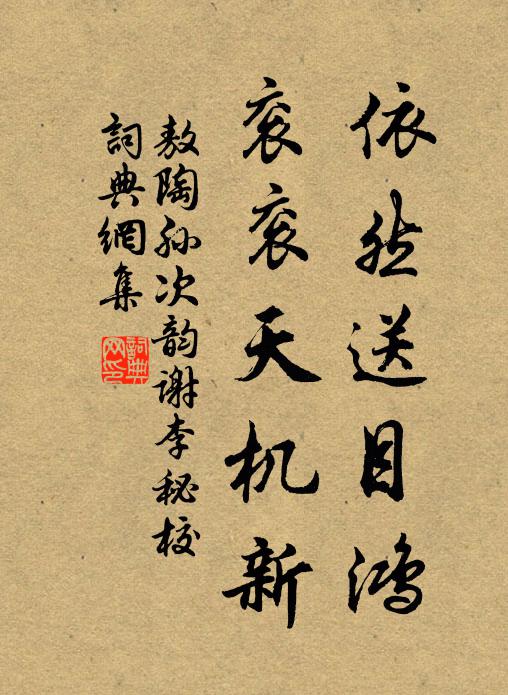 依然送目鴻
衮衮天机新
敖陶孫次韵謝李秘校
詞典網集
詞典网印